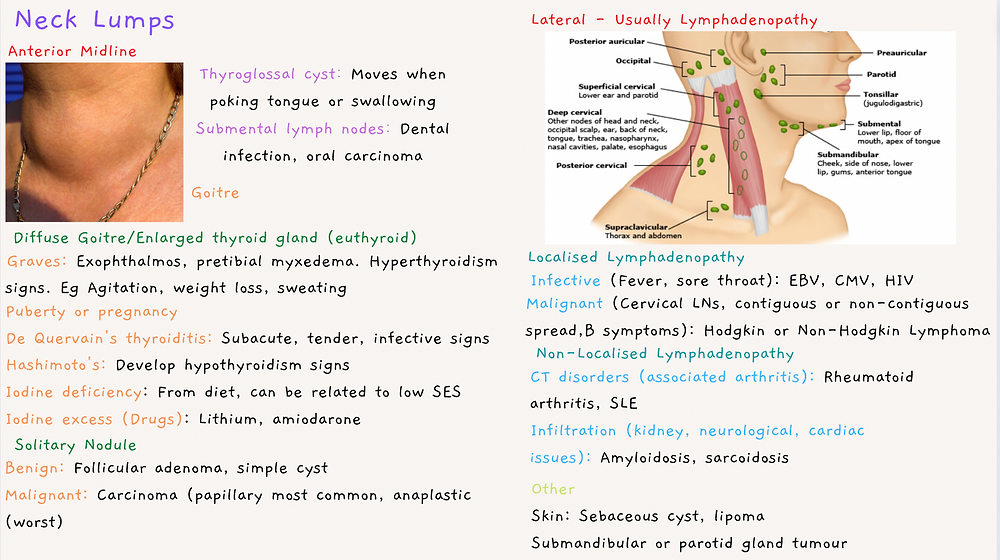 Neck Lumps
Anterior Midline
Thyroglossal cyst: Moves when
poking tongue or swallowing
Submental lymph nodes: Dental
infection, oral carcinoma
Goitre
Diffuse Goitre/Enlarged thyroid gland (euthyroid)
Graves: Exophthalmos, pretibial myxedema. Hyperthyroidism
signs. Eg Agitation, weight loss, sweating
Puberty or pregnancy
De Quervain's thyroiditis: Subacute, tender, infective signs
Hashimoto's: Develop hypothyroidism signs
Iodine deficiency: From diet, can be related to low SES
Iodine excess (Drugs): Lithium, amiodarone
Solitary Nodule
Benign: Follicular adenoma, simple cyst
Malignant: Carcinoma (papillary most common, anaplastic
(worst)
Lateral - Usually Lymphadenopathy
Posterior auricular
Occipital
Superficial cervical
Lower ear and parotid
Deep cervical
Other nodes of head and neck,
occipital scalp, ear, back of neck,
tongue, trachea, nasopharynx,
nasal cavities, palate, esophagus
Posterior cervical
Supraclavicular
Thorax and abdomen
Preauricular
Parotid
Tonsillar
(jugulodigastric)
Submental
Lower lip, floor of
mouth, apex of tongue
Submandibular
Cheek, side of nose, lower
lip, gums, anterior tongue
Localised Lymphadenopathy
Infective (Fever, sore throat): EBV, CMV, HIV
Malignant (Cervical LNs, contiguous or non-contiguous
spread,B symptoms): Hodgkin or Non-Hodgkin Lymphoma
Non-Localised Lymphadenopathy
CT disorders (associated arthritis): Rheumatoid
arthritis, SLE
Infiltration (kidney, neurological, cardiac
issues): Amyloidosis, sarcoidosis
Other
Skin: Sebaceous cyst, lipoma
Submandibular or parotid gland tumour